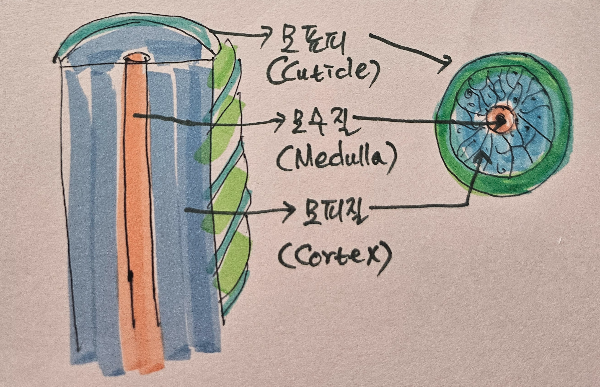 모표피
(Cuticle)
모수질
(Medulla)
모피질
(Cortex)